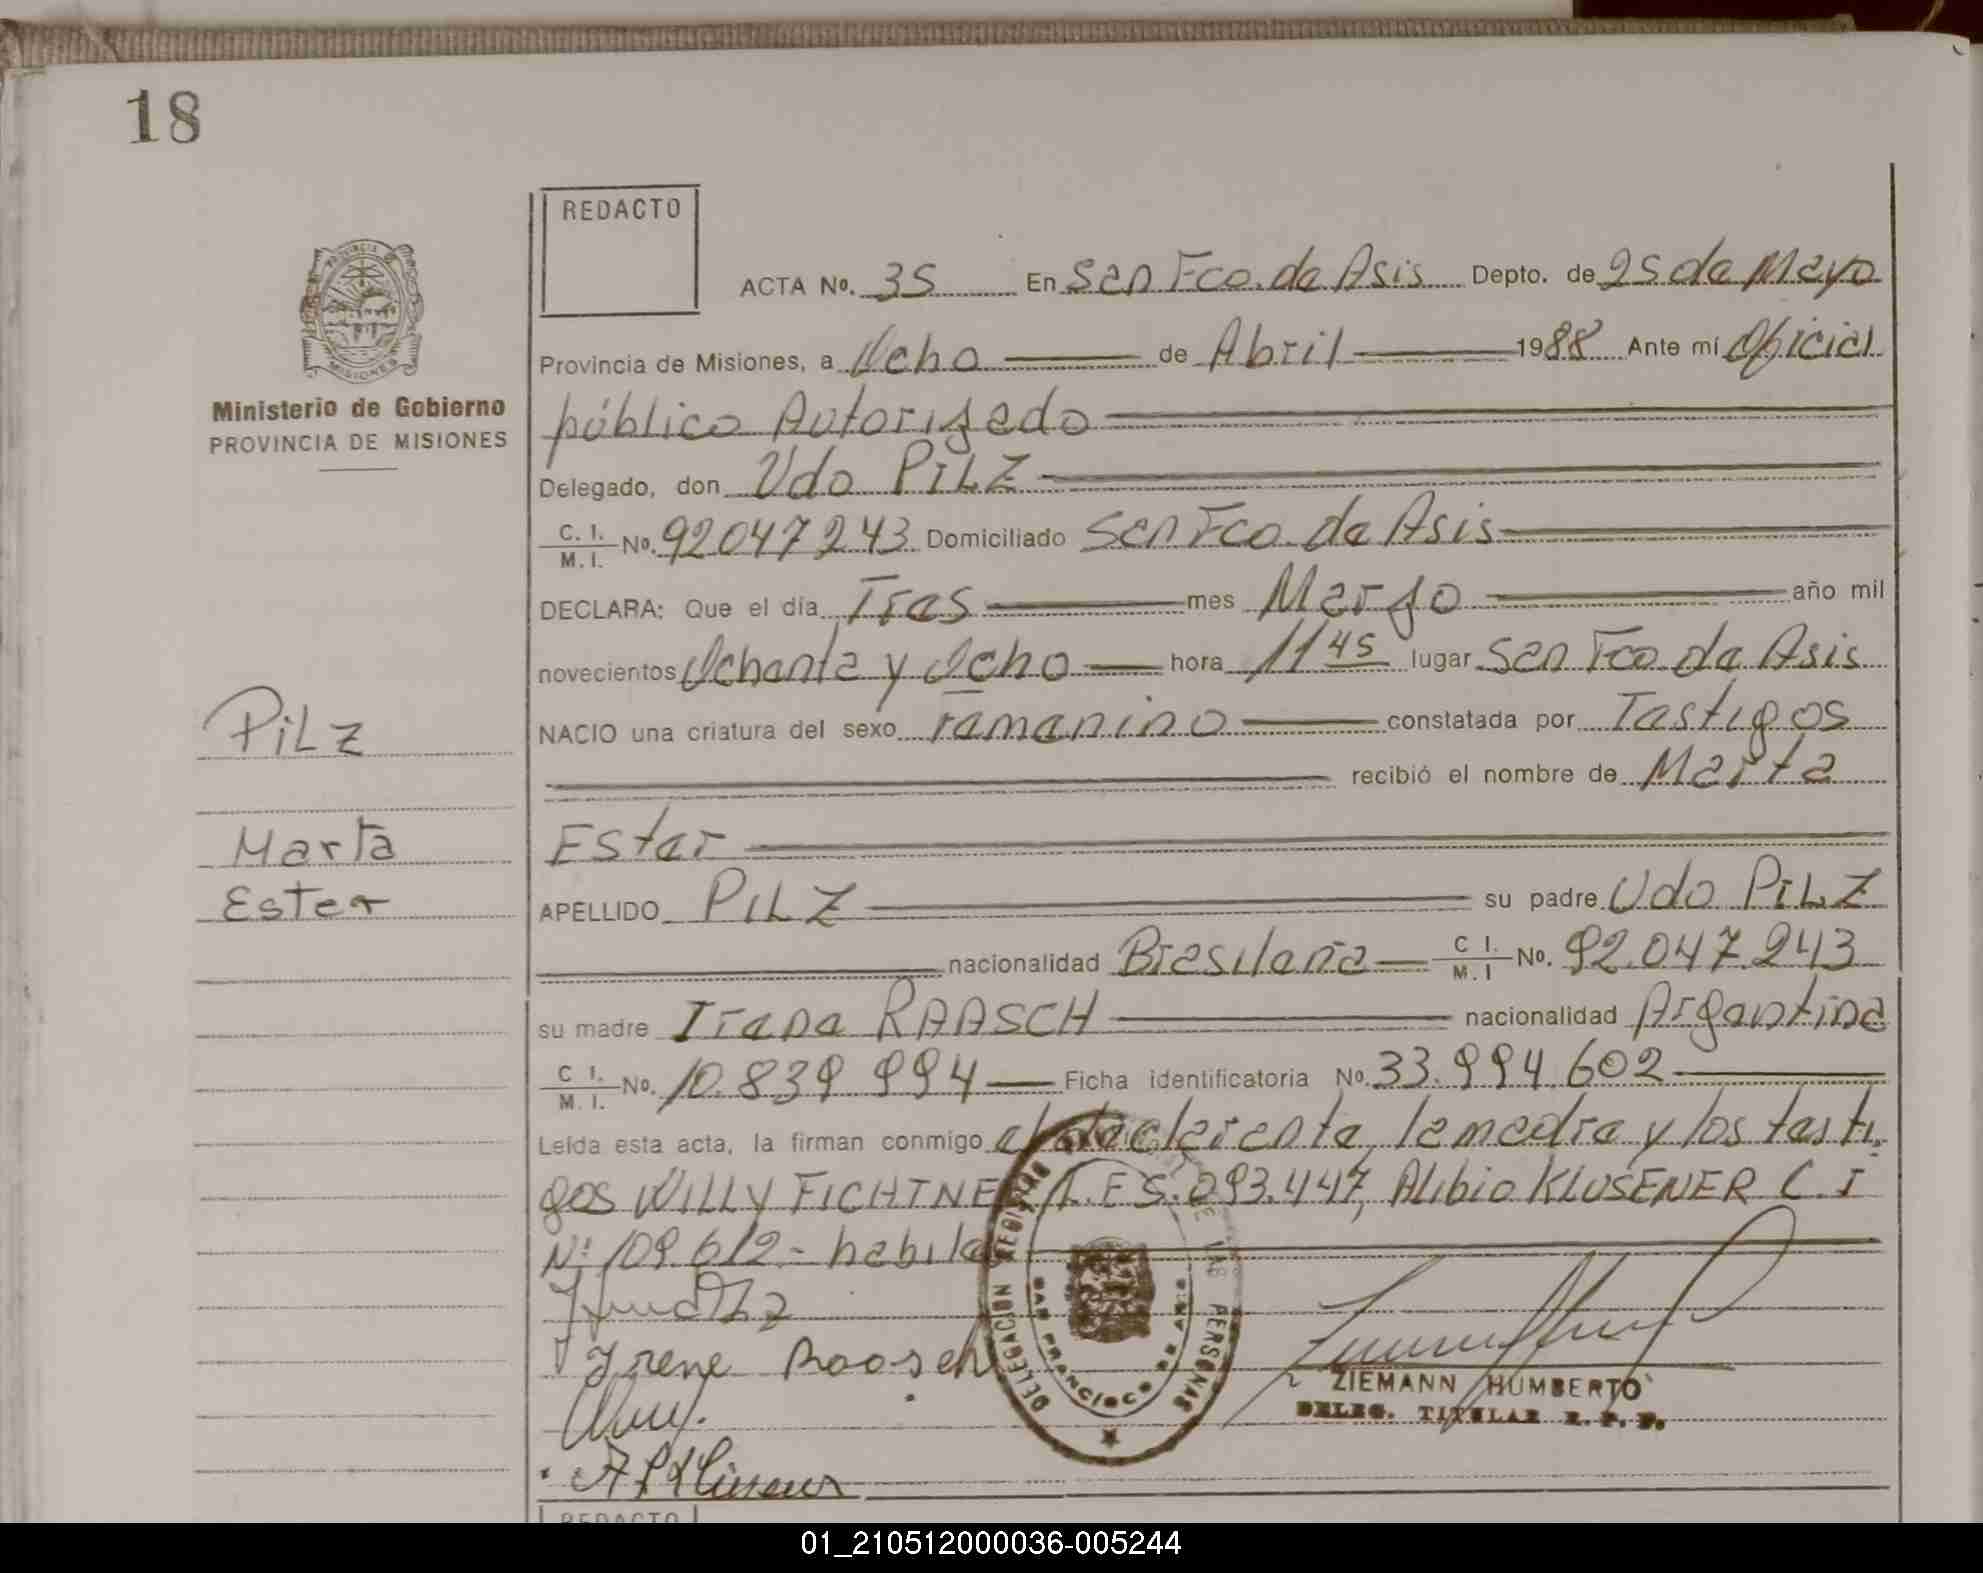 18
REDACTO
ACTA Nº. 35 En San Fco. de Asis Depto. de 25 de Mayo
Provincia de Misiones, a Ocho de Abril 1988 Ante mí Oficial
público Autorizado
Delegado, don Udo PILZ
C. I. / M. I. Nº. 92047243 Domiciliado San Fco. de Asis
DECLARA: Que el día Tres mes Marzo año mil
novecientos Ochenta y Ocho hora 11 45 lugar San Fco de Asis
NACIO una criatura del sexo Femenino constatada por Testigos
recibió el nombre de Marta
Ester
APELLIDO PILZ su padre Udo PILZ
nacionalidad Brasileña C I. / M. I Nº. 92.047.243
su madre Irene RAASCH nacionalidad Argentina
C I. / M. I. Nº. 10.839.994 Ficha identificatoria Nº. 33.994.602
Leída esta acta, la firman conmigo el declarante, la madre y los testi
gos WILLY FICHTNER S.293.447, Alibio KLUSENER C. I
Nº 109.612.- habiles
Irene Raasch
ZIEMANN HUMBERTO
DELEG. TITULAR R. P. P.
DELEGACION REGISTRO DE LAS PERSONAS
SAN FRANCISCO DE ASIS
PROVINCIA
MISIONES
Ministerio de Gobierno
PROVINCIA DE MISIONES
PiLz
Marta
Ester
REDACTO
01_210512000036-005244